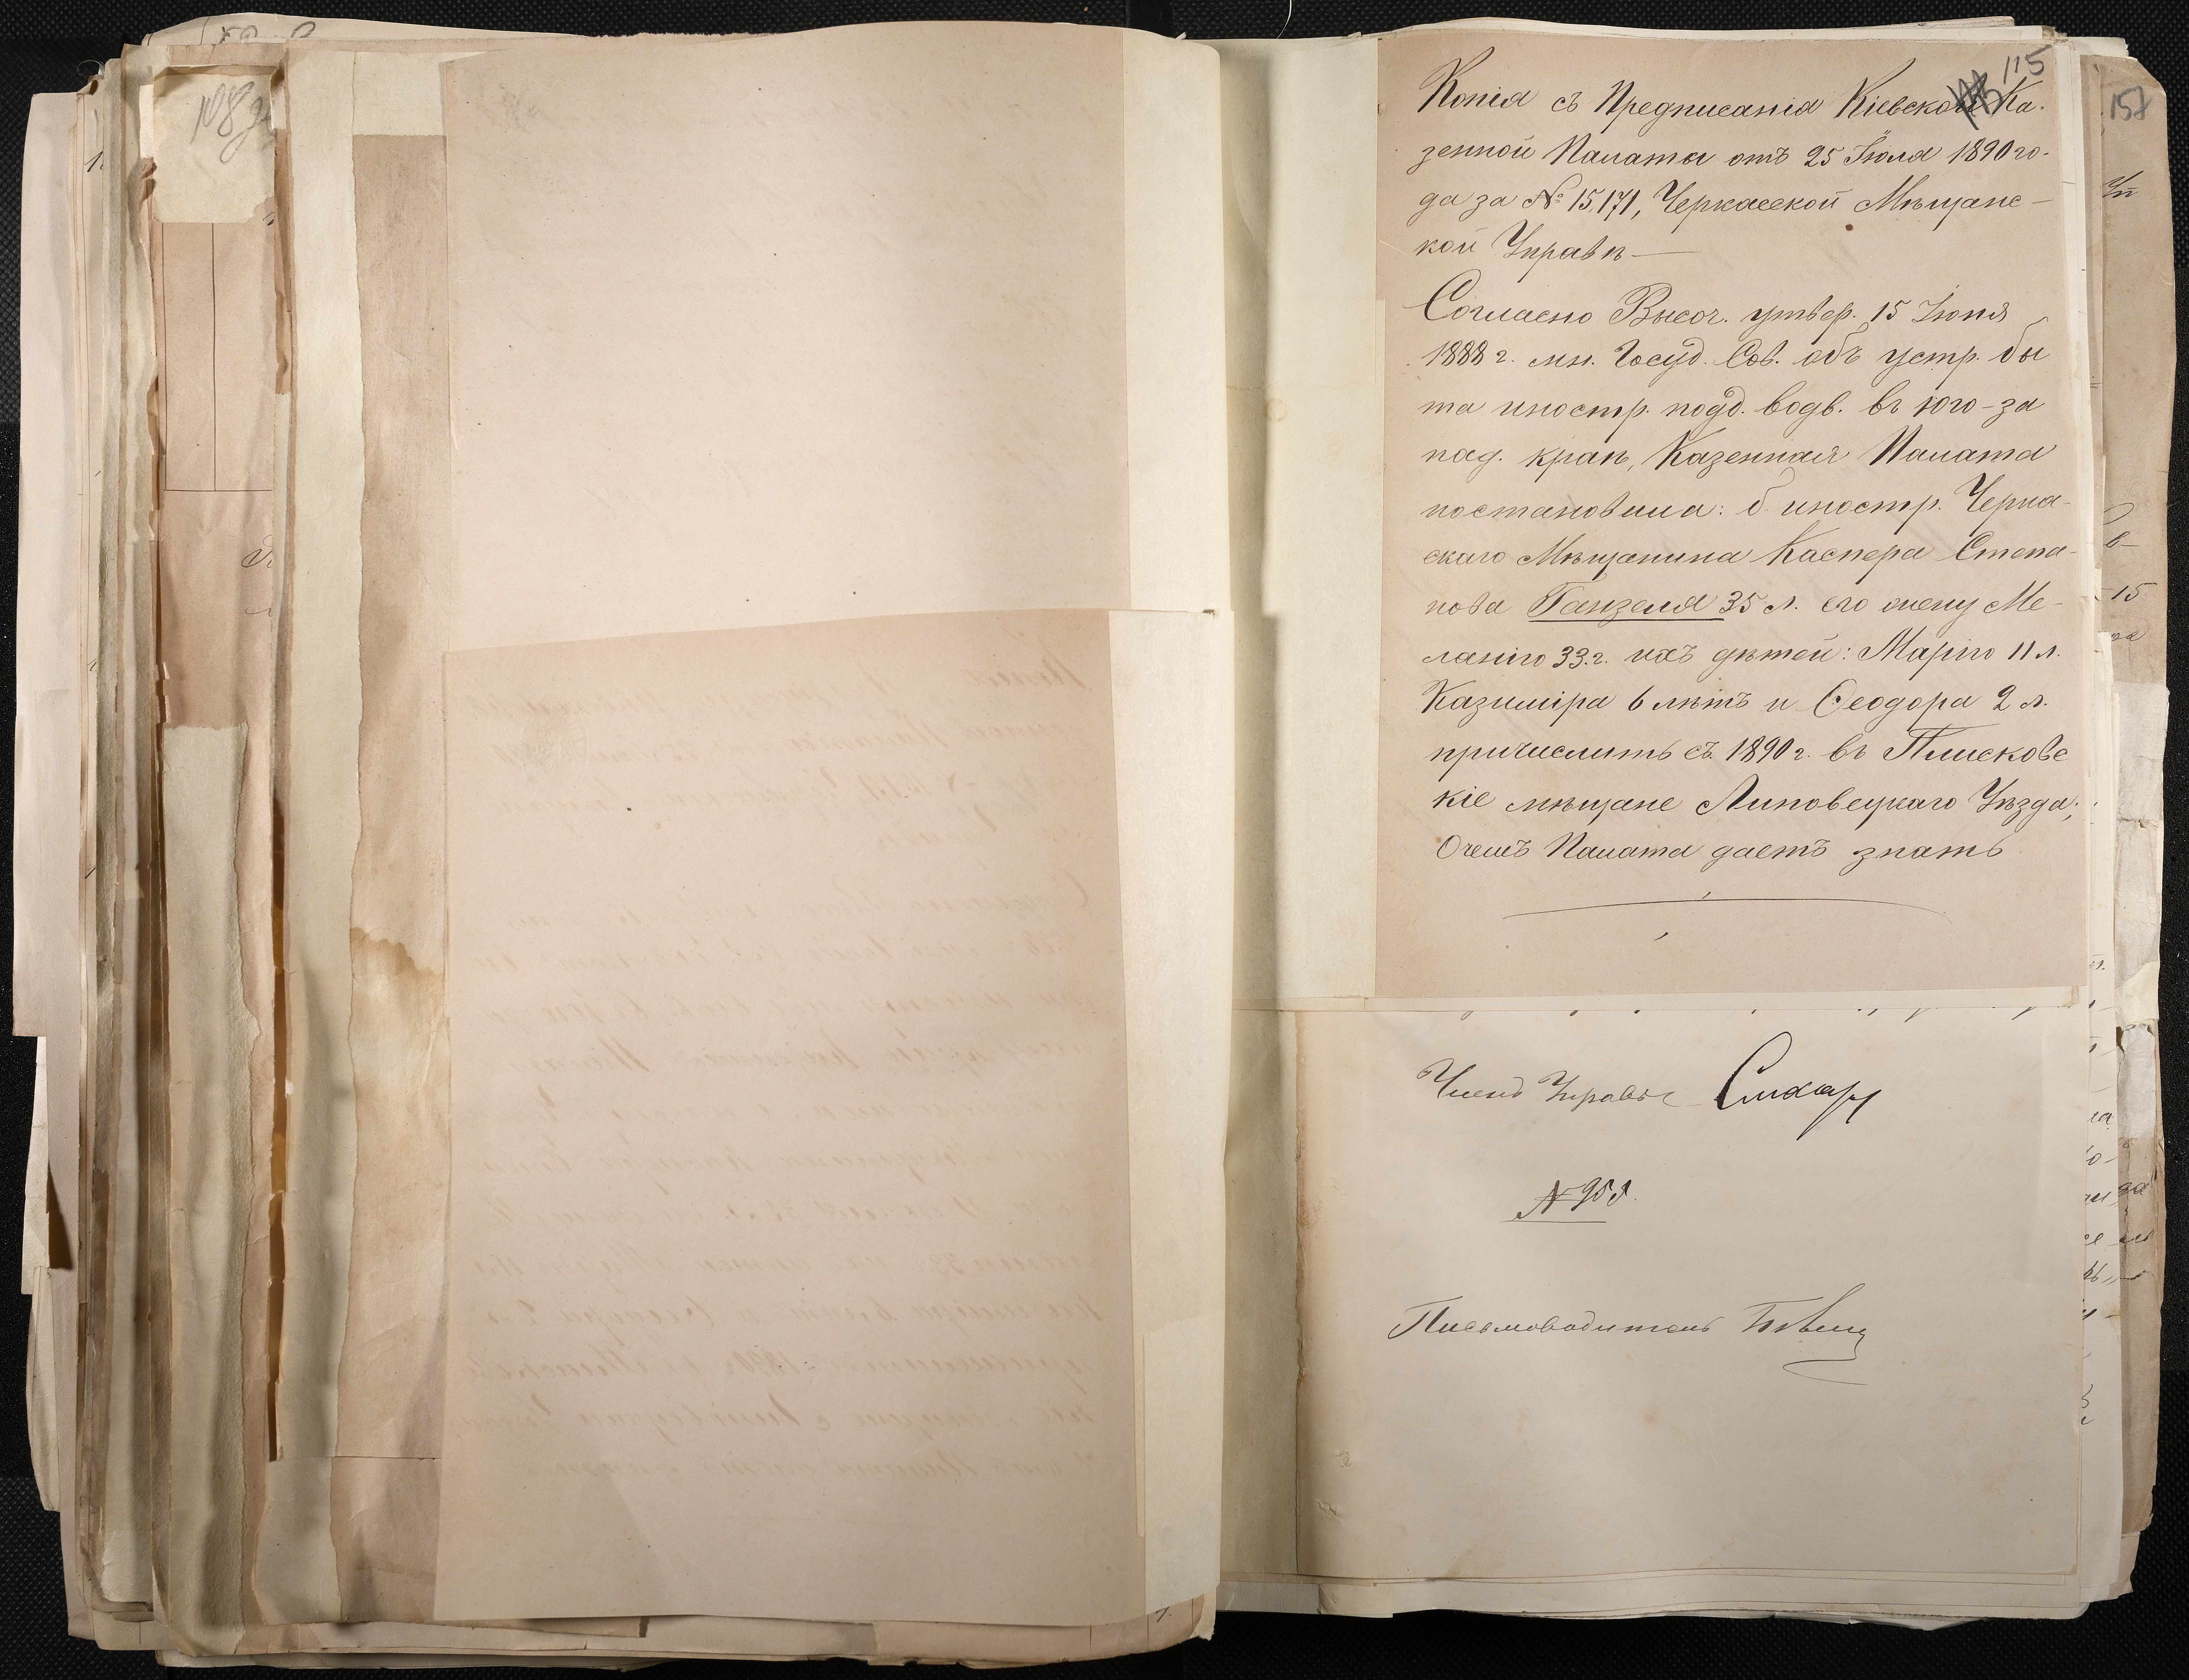 115
Копія съ Предписанія Кіевской Ка-
зенной Палаты отъ 25 Іюля 1890 го-
да за № 15,171, Черкасской Мѣщанс-
кой Управѣ —
Согласно Высоч. утвер. 15 Іюня
1888 г. мн. Госуд. Сов. объ устр. бы
та иностр. подд. водв. въ юго-за
пад. краѣ, Казенная Палата
постановила: б. иностр. Черка-
скаго Мѣщанина Каспера Степа-
нова Ганзеля 35 л. его жену Ме-
ланію 33 г. ихъ дѣтей: Марію 11 л.
Казиміра 6 лѣтъ и Ѳеодора 2 л.
причислить съ 1890 г. въ Плисковс
кіе мѣщане Липовецкаго Уѣзда;
О чемъ Палата даетъ знать
Членъ Управы
№ 958.
Письмоводитель
157